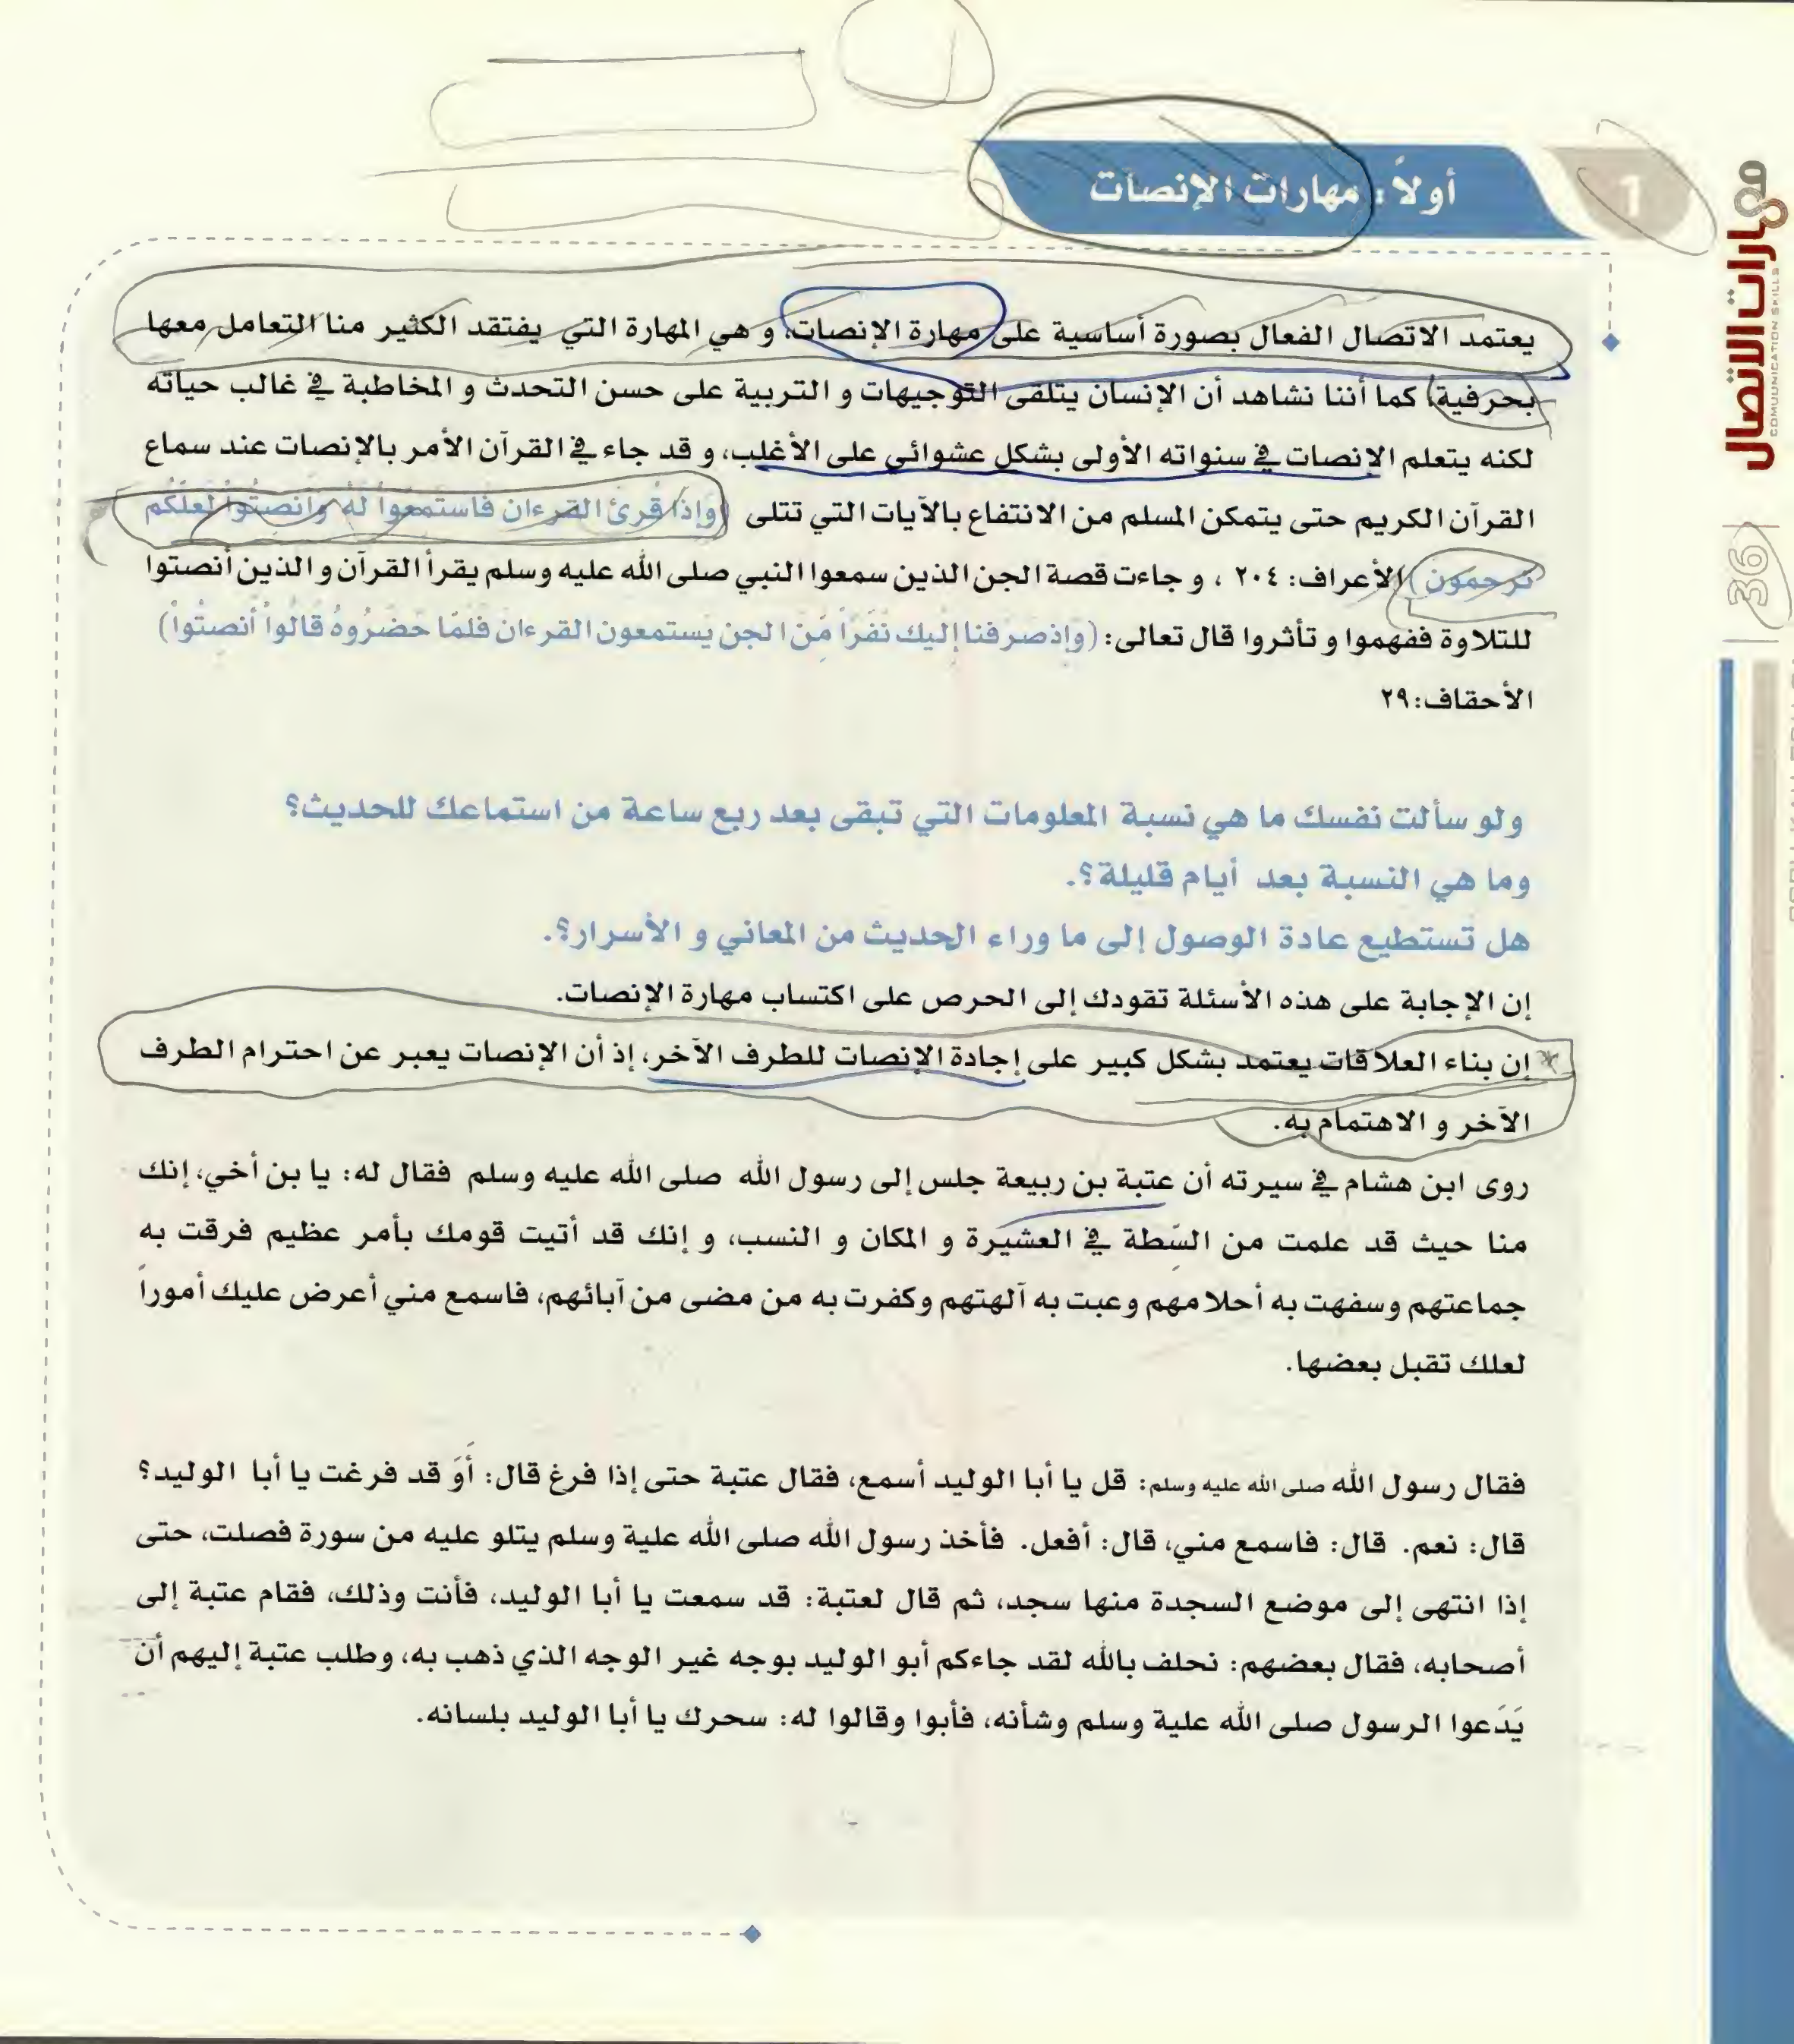 أولاً : مهارات الإنصات
1
مهارات الاتصال
COMUUNICATION SKILLS
36
يعتمد الاتصال الفعال بصورة أساسية على مهارة الإنصات، و هي المهارة التي يفتقد الكثير منا التعامل معها
بحرفية، كما أننا نشاهد أن الإنسان يتلقى التوجيهات و التربية على حسن التحدث و المخاطبة في غالب حياته
لكنه يتعلم الإنصات في سنواته الأولى بشكل عشوائي على الأغلب، و قد جاء في القرآن الأمر بالإنصات عند سماع
القرآن الكريم حتى يتمكن المسلم من الانتفاع بالآيات التي تتلى (وإذا قُرئ القرءان فاستمعوا لهُ وأنصتُوا لعلَّكُم
تُرحمون) الأعراف: ٢٠٤ ، و جاءت قصة الجن الذين سمعوا النبي صلى الله عليه وسلم يقرأ القرآن و الذين أنصتوا
للتلاوة ففهموا و تأثروا قال تعالى: (وإذ صرفنا إليك نفراً مّن الجن يستمعون القرءان فلمّا حضرُوهُ قالُواْ أنصتُواْ)
الأحقاف: ٢٩
ولو سألت نفسك ما هي نسبة المعلومات التي تبقى بعد ربع ساعة من استماعك للحديث؟
وما هي النسبة بعد أيام قليلة؟.
هل تستطيع عادة الوصول إلى ما وراء الحديث من المعاني و الأسرار؟.
إن الإجابة على هذه الأسئلة تقودك إلى الحرص على اكتساب مهارة الإنصات.
إن بناء العلاقات يعتمد بشكل كبير على إجادة الإنصات للطرف الآخر، إذ أن الإنصات يعبر عن احترام الطرف
الآخر و الاهتمام به.
روى ابن هشام في سيرته أن عتبة بن ربيعة جلس إلى رسول الله صلى الله عليه وسلم فقال له: يا بن أخي، إنك
منا حيث قد علمت من السِّطة في العشيرة و المكان و النسب، و إنك قد أتيت قومك بأمر عظيم فرقت به
جماعتهم وسفهت به أحلامهم وعبت به آلهتهم وكفرت به من مضى من آبائهم، فاسمع مني أعرض عليك أموراً
لعلك تقبل بعضها.
فقال رسول الله صلى الله عليه وسلم: قل يا أبا الوليد أسمع، فقال عتبة حتى إذا فرغ قال: أَوَ قد فرغت يا أبا الوليد؟
قال: نعم. قال: فاسمع مني، قال: أفعل. فأخذ رسول الله صلى الله علية وسلم يتلو عليه من سورة فصلت، حتى
إذا انتهى إلى موضع السجدة منها سجد، ثم قال لعتبة: قد سمعت يا أبا الوليد، فأنت وذلك، فقام عتبة إلى
أصحابه، فقال بعضهم: نحلف بالله لقد جاءكم أبو الوليد بوجه غير الوجه الذي ذهب به، وطلب عتبة إليهم أن
يَدَعوا الرسول صلى الله علية وسلم وشأنه، فأبوا وقالوا له: سحرك يا أبا الوليد بلسانه.